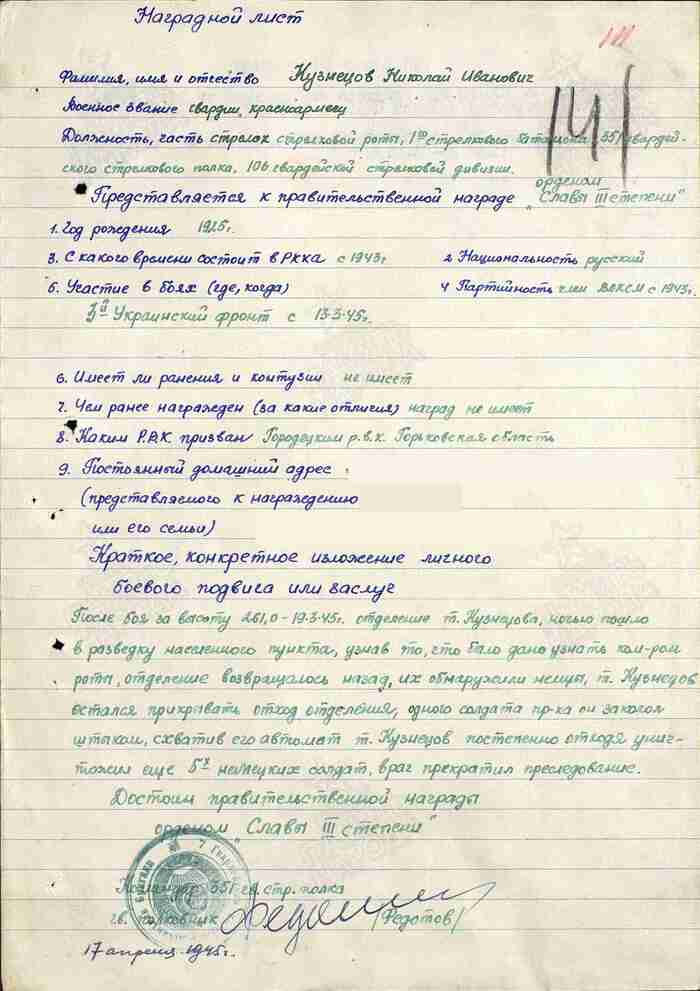 Наградной лист
Фамилия, имя и отчество Кузнецов Николай Иванович
Военное звание гвардии красноармеец
Должность, часть стрелок стрелковой роты, 1го стрелкового батальона 351 гвардей-
ского стрелкового полка, 106 гвардейской стрелковой дивизии.
орденом
Представляется к правительственной награде „Славы III степени"
1. Год рождения 1925г.
3. С какого времени состоит в РККА с 1943г 2 Национальность русский
5. Участие в боях (где, когда) 4 Партийность член ВЛКСМ с 1943г.
3й Украинский фронт с 13-3-45г.
6. Имеет ли ранения и контузии не имеет
7. Чем ранее награжден (за какие отличия) наград не имеет
8. Каким Р.В.К призван Городецким р.в.к. Горьковская область
9. Постоянный домашний адрес
(представляемого к награждению
или его семьи)
Краткое, конкретное изложение личного
боевого подвига или заслуг
После боя за высоту 261,0 - 19-3-45г. отделение т. Кузнецова, ночью пошло
в разведку населенного пункта, узнав то, что было дано узнать ком-ром
роты, отделение возвращалось назад, их обнаружили немцы, т. Кузнецов
остался прикрывать отход отделения, одного солдата пр-ка он заколол
штыком, схватив его автомат т. Кузнецов постепенно отходя унич-
тожил еще 5х немецких солдат, враг прекратил преследование.
Достоин правительственной награды
орденом „Славы III степени"
Командир 351 гв. стр. полка
гв. полковник (Федотов)
17 апреля 1945г.